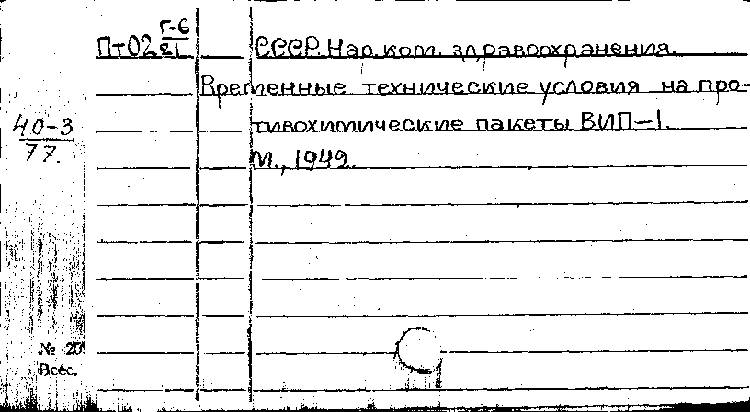 Пт02 Г-6/21 СССР. Нар. ком. здравоохранения.
Временные технические условия на про-
тивохимические пакеты ВИП-1.
М., 1949.
40-3/77.
№ 20
Всес.